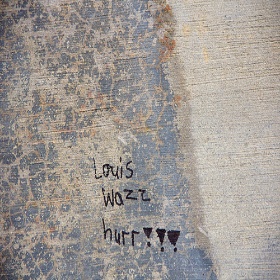 Louis
Wazz
hurr!!!